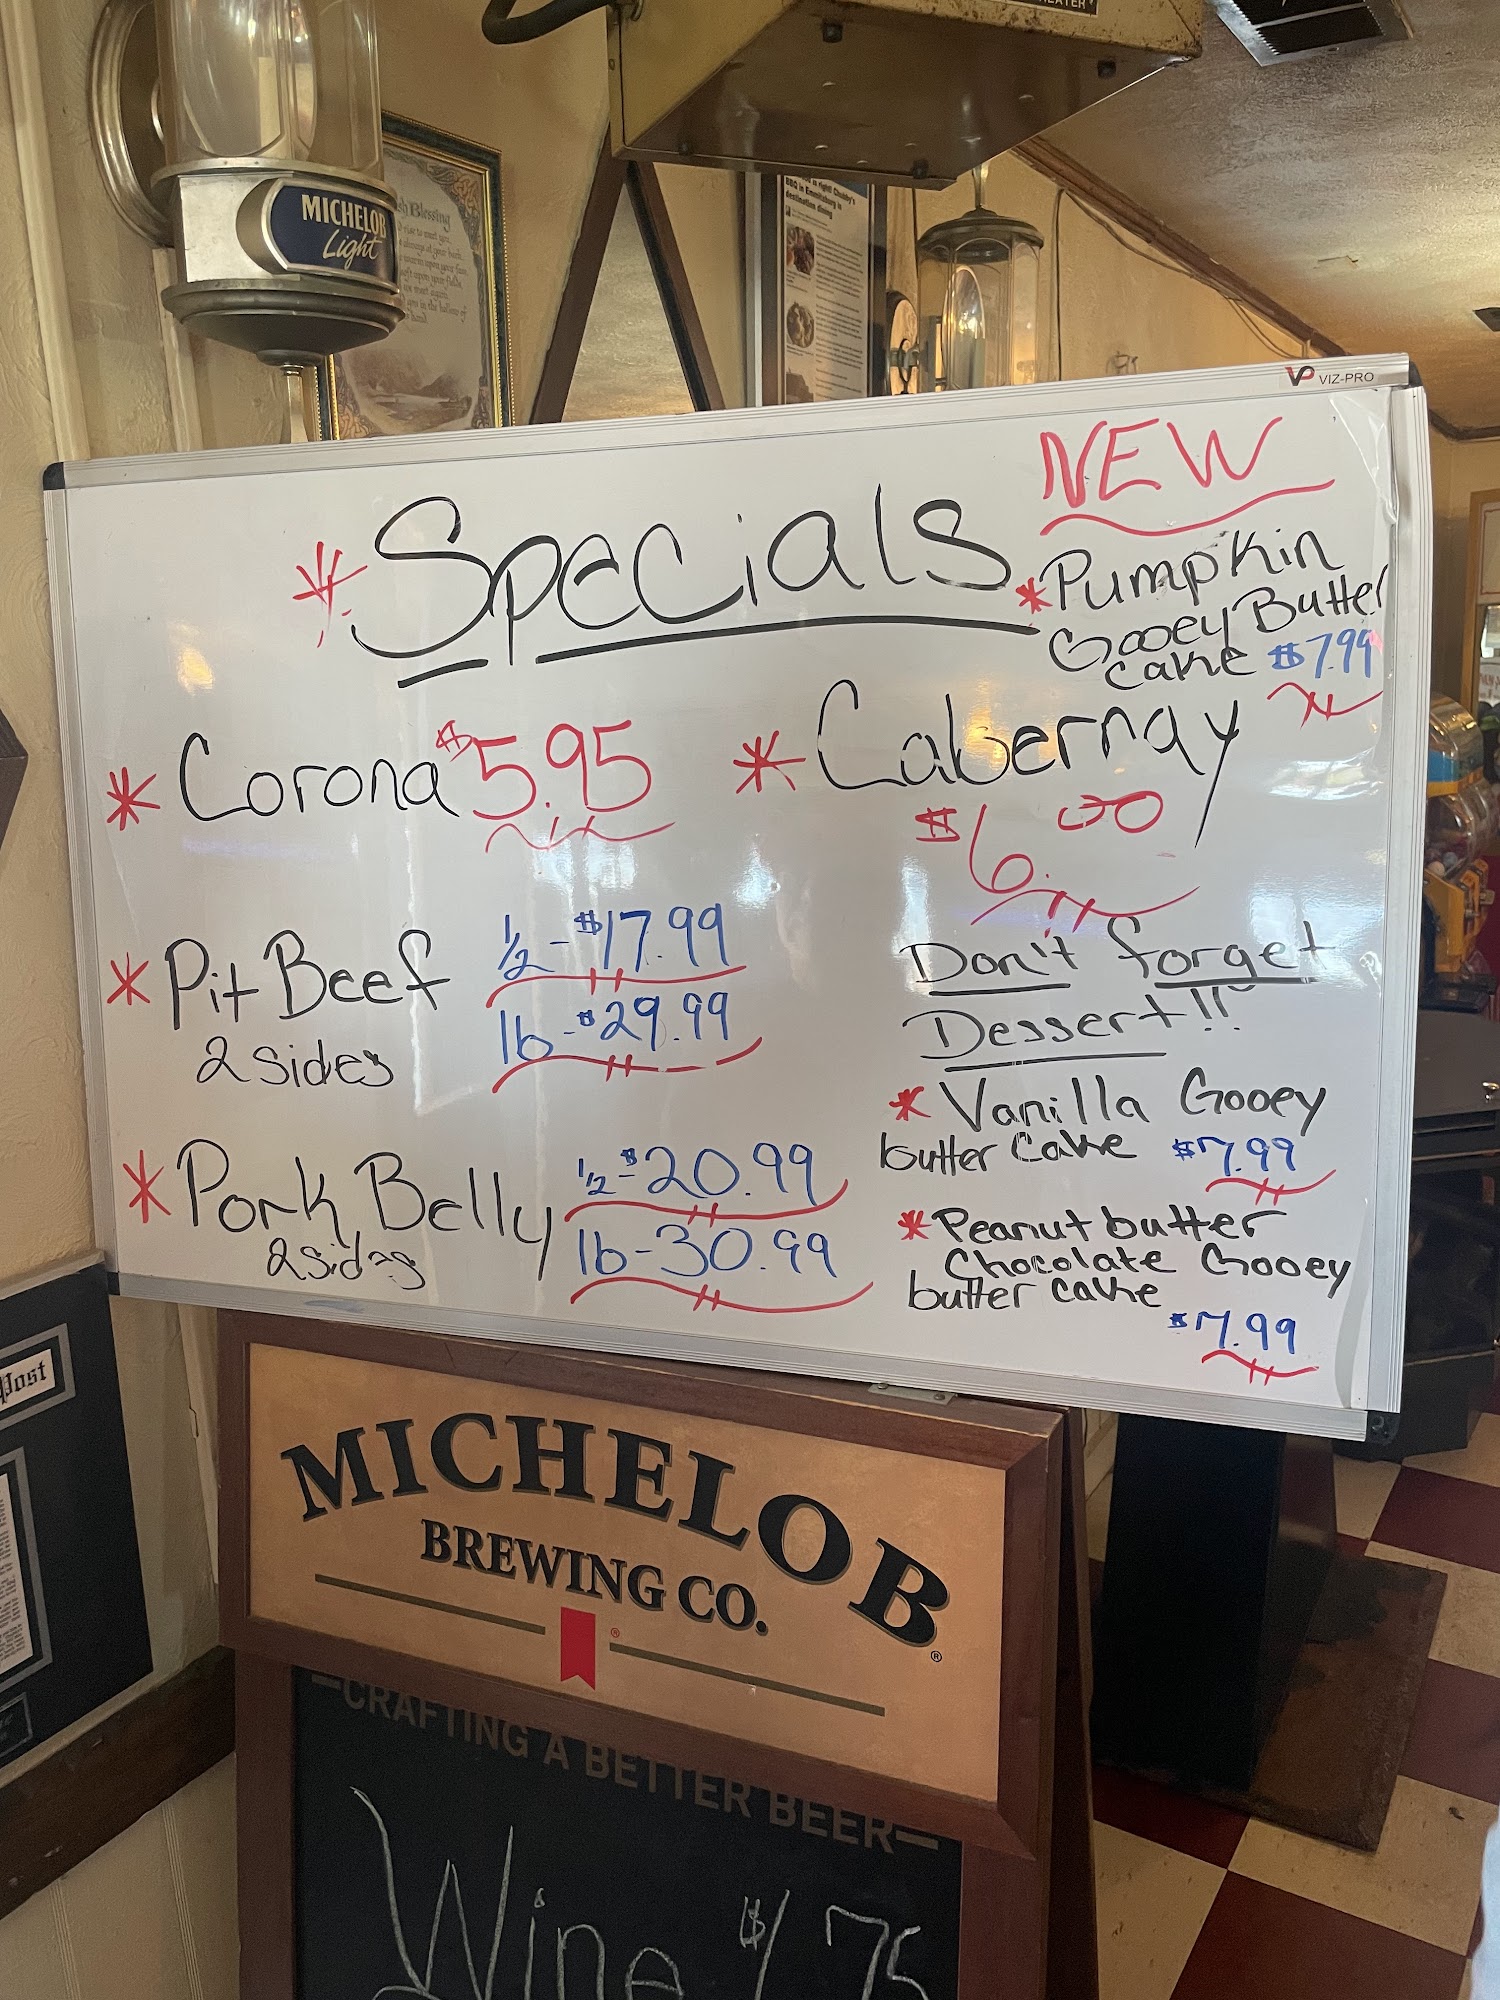 HEATER
MICHELOB
Light
sh Blessing
BBQ in Emmitsburg is
destination dining
VP VIZ-PRO
NEW
* Specials
* Pumpkin
Gooey Butter
cake $7.99
* Corona $5.95
* Cabernay
$6.00
* Pit Beef 1/2 - $17.99
2 sides lb - $29.99
* Pork Belly 1/2 - $20.99
2 sides lb - 30.99
Don't forget
Dessert!!
* Vanilla Gooey
butter cake $7.99
* Peanut butter
Chocolate Gooey
butter cake
$7.99
Post
MICHELOB
BREWING CO.
—CRAFTING A BETTER BEER—
Wine